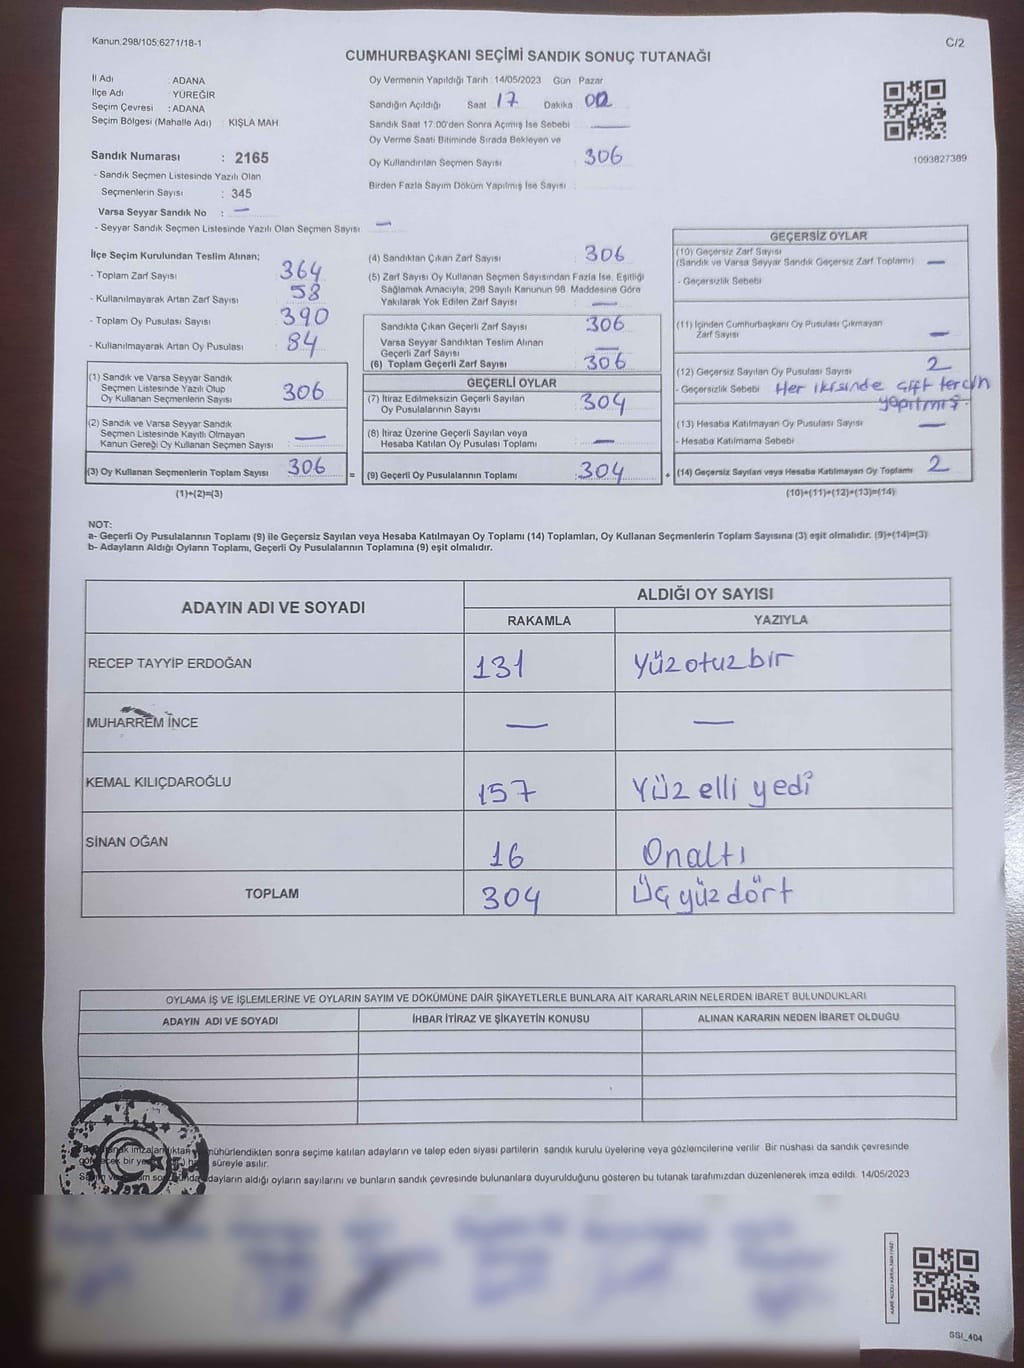 Kanun 298/105;6271/18-1
C/2
CUMHURBAŞKANI SEÇİMİ SANDIK SONUÇ TUTANAĞI
İl Adı : ADANA
İlçe Adı : YÜREĞİR
Seçim Çevresi : ADANA
Seçim Bölgesi (Mahalle Adı) : KIŞLA MAH
Sandık Numarası : 2165
- Sandık Seçmen Listesinde Yazılı Olan
Seçmenlerin Sayısı : 345
Varsa Seyyar Sandık No : —
- Seyyar Sandık Seçmen Listesinde Yazılı Olan Seçmen Sayısı —
Oy Vermenin Yapıldığı Tarih 14/05/2023 Gün Pazar
Sandığın Açıldığı Saat 17 Dakika 00
Sandık Saat 17:00'den Sonra Açımış İse Sebebi —
Oy Verme Saati Bitiminde Sırada Bekleyen ve
Oy Kullandırılan Seçmen Sayısı 306
Birden Fazla Sayım Döküm Yapılmış İse Sayısı
1093827389
İlçe Seçim Kurulundan Teslim Alınan;
- Toplam Zarf Sayısı 364
- Kullanılmayarak Artan Zarf Sayısı 58
- Toplam Oy Pusulası Sayısı 390
- Kullanılmayarak Artan Oy Pusulası 84
(1) Sandık ve Varsa Seyyar Sandık
Seçmen Listesinde Yazılı Olup
Oy Kullanan Seçmenlerin Sayısı 306
(2) Sandık ve Varsa Seyyar Sandık
Seçmen Listesinde Kayıtlı Olmayan
Kanun Gereği Oy Kullanan Seçmen Sayısı —
(3) Oy Kullanan Seçmenlerin Toplam Sayısı 306 =
(1)+(2)=(3)
(4) Sandıktan Çıkan Zarf Sayısı 306
(5) Zarf Sayısı Oy Kullanan Seçmen Sayısından Fazla İse, Eşitliği
Sağlamak Amacıyla, 298 Sayılı Kanunun 98. Maddesine Göre
Yakılarak Yok Edilen Zarf Sayısı —
Sandıkta Çıkan Geçerli Zarf Sayısı 306
Varsa Seyyar Sandıktan Teslim Alınan
Geçerli Zarf Sayısı —
(6) Toplam Geçerli Zarf Sayısı 306
GEÇERLİ OYLAR
(7) İtiraz Edilmeksizin Geçerli Sayılan
Oy Pusulalarının Sayısı 304
(8) İtiraz Üzerine Geçerli Sayılan veya
Hesaba Katılan Oy Pusulası Toplamı —
(9) Geçerli Oy Pusulalarının Toplamı 304 +
GEÇERSİZ OYLAR
(10) Geçersiz Zarf Sayısı
(Sandık ve Varsa Seyyar Sandık Geçersiz Zarf Toplamı) —
- Geçersizlik Sebebi
(11) İçinden Cumhurbaşkanı Oy Pusulası Çıkmayan
Zarf Sayısı —
(12) Geçersiz Sayılan Oy Pusulası Sayısı 2
- Geçersizlik Sebebi Her ikisinde çift tercih
yapıtmış.
(13) Hesaba Katılmayan Oy Pusulası Sayısı —
- Hesaba Katılmama Sebebi
(14) Geçersiz Sayılan veya Hesaba Katılmayan Oy Toplamı 2
(10)+(11)+(12)+(13)=(14)
NOT:
a- Geçerli Oy Pusulalarının Toplamı (9) ile Geçersiz Sayılan veya Hesaba Katılmayan Oy Toplamı (14) Toplamları, Oy Kullanan Seçmenlerin Toplam Sayısına (3) eşit olmalıdır. (9)+(14)=(3)
b- Adayların Aldığı Oyların Toplamı, Geçerli Oy Pusulalarının Toplamına (9) eşit olmalıdır.
ADAYIN ADI VE SOYADI
ALDIĞI OY SAYISI
RAKAMLA YAZIYLA
RECEP TAYYİP ERDOĞAN 131 Yüzotuzbir
MUHARREM İNCE — —
KEMAL KILIÇDAROĞLU 157 Yüz elli yedi
SİNAN OĞAN 16 Onaltı
TOPLAM 304 Üç yüz dört
OYLAMA İŞ VE İŞLEMLERİNE VE OYLARIN SAYIM VE DÖKÜMÜNE DAİR ŞİKAYETLERLE BUNLARA AİT KARARLARIN NELERDEN İBARET BULUNDUKLARI
ADAYIN ADI VE SOYADI İHBAR İTİRAZ VE ŞİKAYETİN KONUSU ALINAN KARARIN NEDEN İBARET OLDUĞU
mühürlendikten sonra seçime katılan adayların ve talep eden siyasi partilerin sandık kurulu üyelerine veya gözlemcilerine verilir Bir nüshası da sandık çevresinde
süreyle asılır.
adayların aldığı oyların sayılarını ve bunların sandık çevresinde bulunanlara duyurulduğunu gösteren bu tutanak tarafımızdan düzenlenerek imza edildi. 14/05/2023
SSI_404